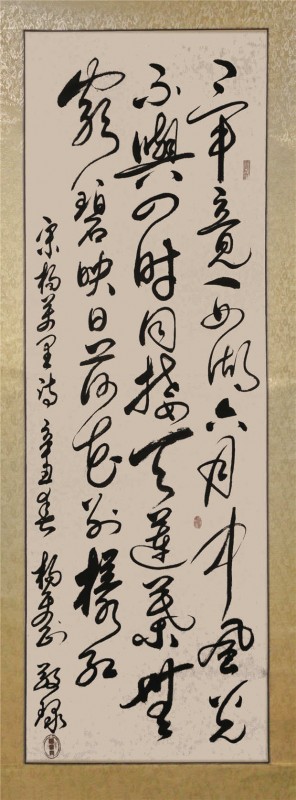 畢竟西湖六月中風光
不與四時同接天蓮葉無
窮碧映日荷花別樣紅
宋楊萬里詩 辛丑春 楊 敬錄